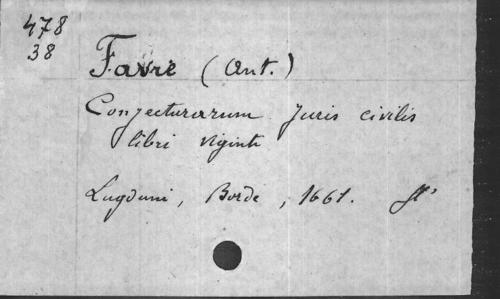 478
38
Favre (Ant.)
Conjecturarum Juris civilis
libri viginti
Lugduni, Borde, 1661.